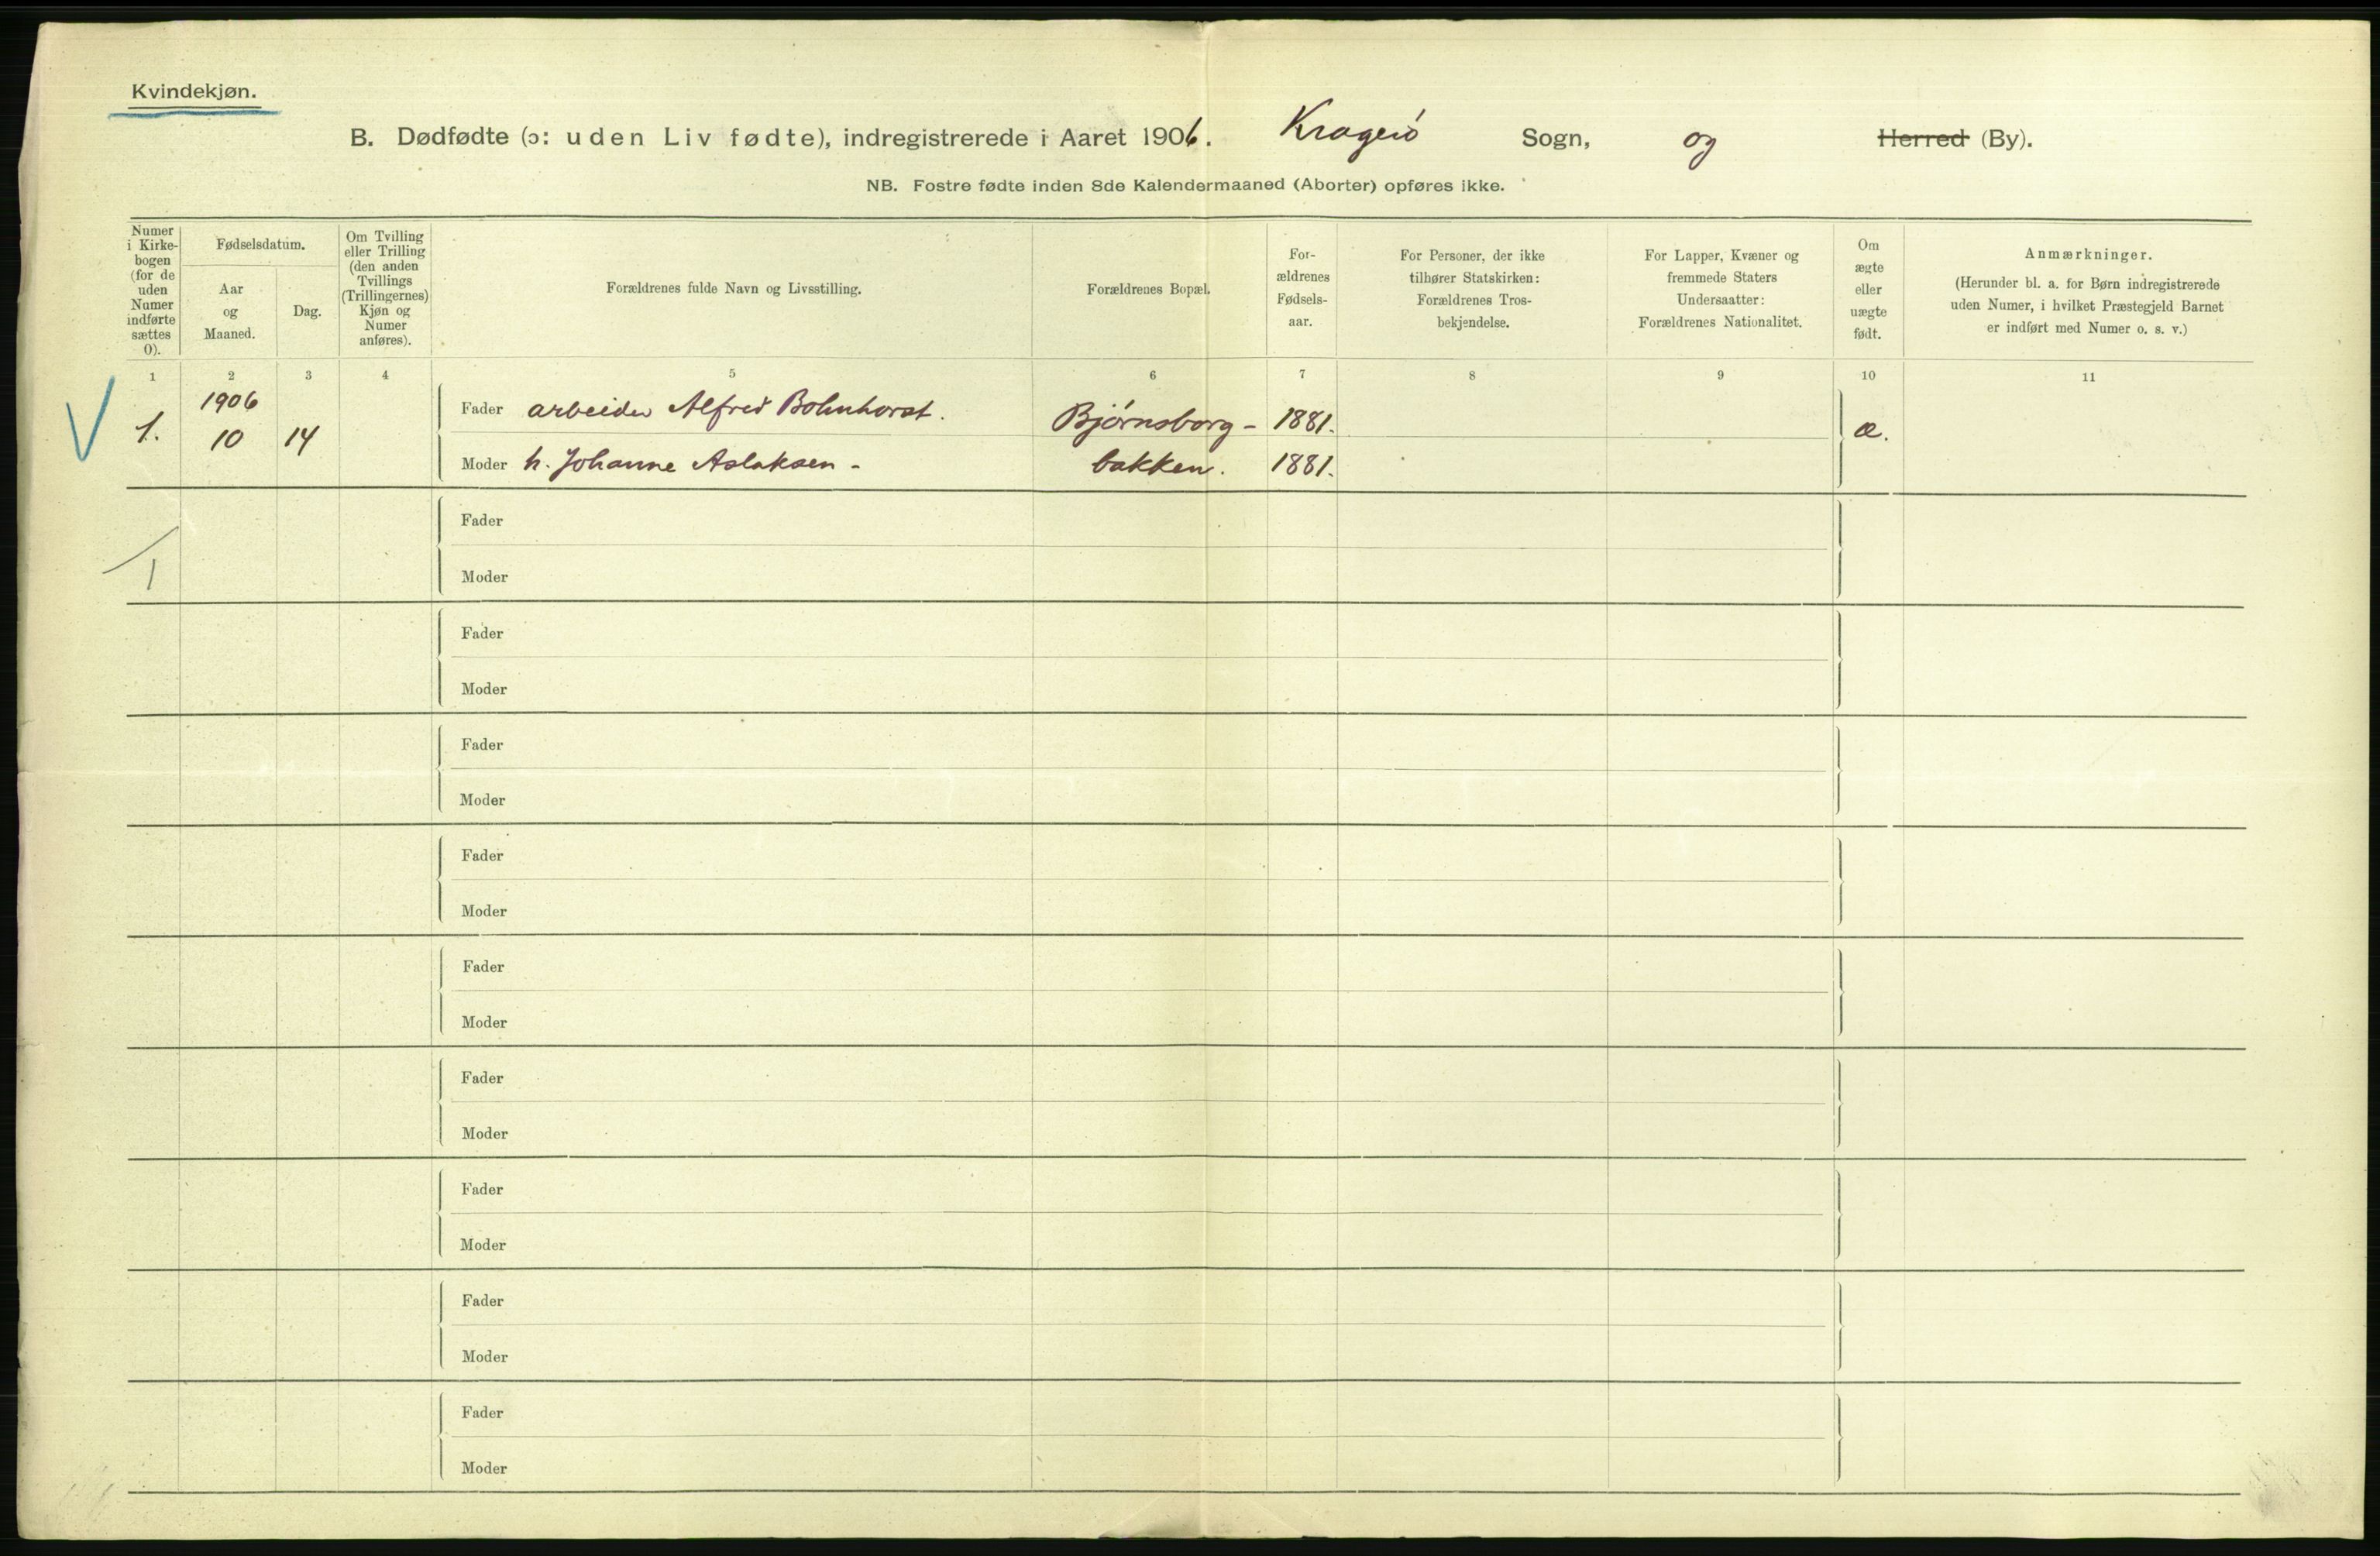 Kvindekjøn.
B. Dødfødte (ɔ: uden Liv fødte), indregistrerede i Aaret 1906. Kragerö Sogn, og Herred (By).
NB. Fostre fødte inden 8de Kalendermaaned (Aborter) opføres ikke.
Numer
i Kirke-
bogen
(for de
uden
Numer
indførte
sættes
0).
Fødselsdatum.
Aar
og
Maaned.
Dag.
Om Tvilling
eller Trilling
(den anden
Tvillings
(Trillingernes)
Kjøn og
Numer
anføres).
Forældrenes fulde Navn og Livsstilling.
Forældrenes Bopæl.
For-
ældrenes
Fødsels-
aar.
For Personer, der ikke
tilhører Statskirken:
Forældrenes Tros-
bekjendelse.
For Lapper, Kvæner og
fremmede Staters
Undersaatter:
Forældrenes Nationalitet.
Om
ægte
eller
uægte
født.
Anmærkninger.
(Herunder bl. a. for Børn indregistrerede
uden Numer, i hvilket Præstegjeld Barnet
er indført med Numer o. s. v.)
1 2 3 4 5 6 7 8 9 10 11
1906
Fader arbeider Alfred Bohnhorst. Bjørnsborg- 1881.
1. 10 14 æ.
Moder h. Johanne Aslaksen - bakken. 1881.
Fader
1
Moder
Fader
Moder
Fader
Moder
Fader
Moder
Fader
Moder
Fader
Moder
Fader
Moder
Fader
Moder
Fader
Moder